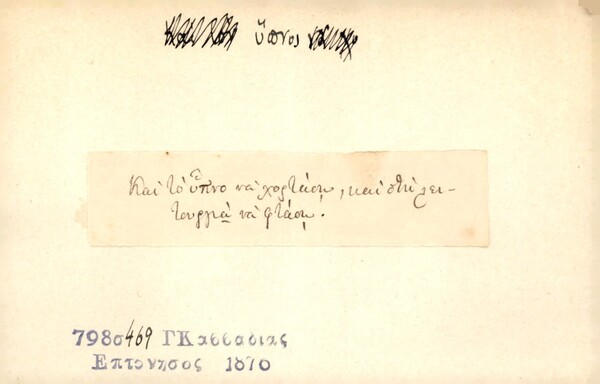 ὕπνος
Καὶ τὸ ὕπνο νὰ χορτάσῃ, καὶ στὴ λει-
τουργιὰ νὰ φτάσῃ.
798σ469 ΓΚαββαδιας
Επτονησος 1870